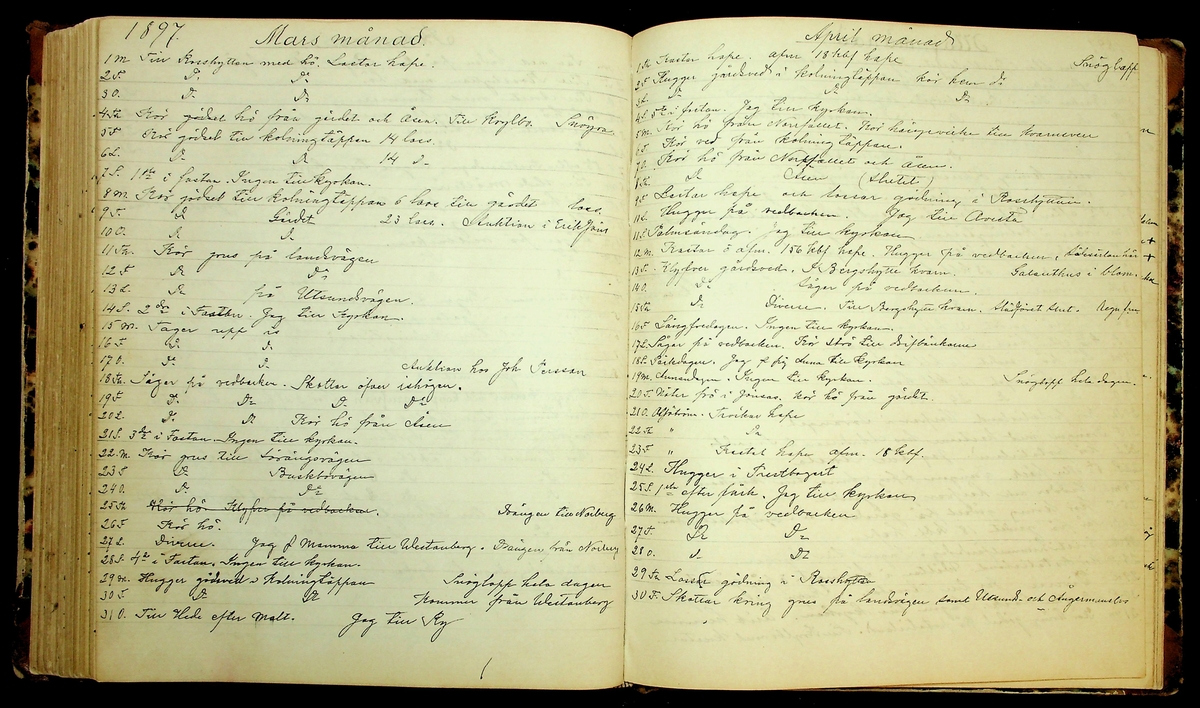 1897. Mars månad.
1 M Till Rosshyttan med hö. Lastar hafre.
2 T. D:o D:o
3 O. D:o D:o
4 Th Kör gödsel hö från gärdet och Åsen. Till Krylbo. Snögra
5 F Kör gödsel till kolningtäppan 14 lass
6 L. D:o D:o 14 D:o
7 S. 1:sta i fastan. Ingen till kyrkan.
8 M. Kör gödsel till kolningtäppan 6 lass till gärdet lass.
9 T. D:o Gärdet 23 lass. Auktion i Erik Jöns
10 O. D:o D:o
11 Th. Kör grus på landsvägen
12 F D:o D:o
13 L. D:o på Utsundsvägen.
14 S. 2:dra i Fastan. Jag till Kyrkan.
15 M. Tager upp is
16 T D:o D:o
17 O. D:o D:o Auktion hos Joh Persson
18 Th. Sågar på vedbacken. Skottar öfver ishögen.
19 F D:o D:o D:o D:o
20 L. D:o D:o Kör hö från Åsen
21 S. 3:dje i Fastan. Ingen till kyrkan.
22 M. Kör grus till Sörängsvägen
23 T D:o Buskbovägen
24 O. D:o D:o
25 Th Kör hö. Klyfver på vedbacken. till Norberg
26 F Kör hö.
27 L. Diverse. Jag & Mamma till Westanberg. från Norberg
28 S. 4:de i Fastan. Ingen till kyrkan.
29 M. Hugger gödsved i Kolningtäppan Snöglopp hela dagen
30 T D:o D:o Kommer från Westanberg
31 O. Till Hede efter Malt. Jag till By
April månad
1 Th Kastar hafre afm 18 kbf hafre Snöglopp
2 F Hugger gärdsved i kolningtäppan kör hem d:o
3 L. D:o D:o D:o
4 S. 5:te i fastan. Jag till kyrkan.
5 M. Kör hö från Norrfallet. Kör till
6 T Kör ved från kolningtäppan.
7 O. Kör hö från Norrfallet och åsen.
8 Th. D:o Åsen (slutet)
9 F Lastar hafre och lossar gödning i Rosshyttan.
10 L. Hugger på vedbacken. Jag till Avesta
11 S. Palmsöndag. Jag till kyrkan
12 M. Kastar o afm. 156 kbf hafre. Hugger på vedbacken,
13 T. Klyfver gärdsved. D:o Bergshytte kvarn. Galanthus i blom.
14 O. D:o Lager på vedbacken.
15 Th D:o Diverse. Till Bergshytte kvarn. Slädföret slut. Regn
16 F Långfredagen. Ingen till kyrkan.
17 L. Sågar på vedbacken. Kör strö till drifbänkarne
18 S. Påskdagen. Jag & Anna till kyrkan
19 M. Annandagen. Ingen till kyrkan. Snöglopp hela dagen.
20 T. frö i Jönsas. Kör hö från gärdet.
21 O. Troskar hafre
22 Th " D:o
23 F " Kastat hafre afm. 18 kbf.
24 L. Hugger i
25 S. 1:sta efter påsk. Jag till kyrkan
26 M. Hugger på vedbacken
27 T. D:o D:o
28 O. D:o D:o
29 Th Lossar gödning i Rosshyttan
30 F. Skottar kring grus på landsvägen samt Utsund- och